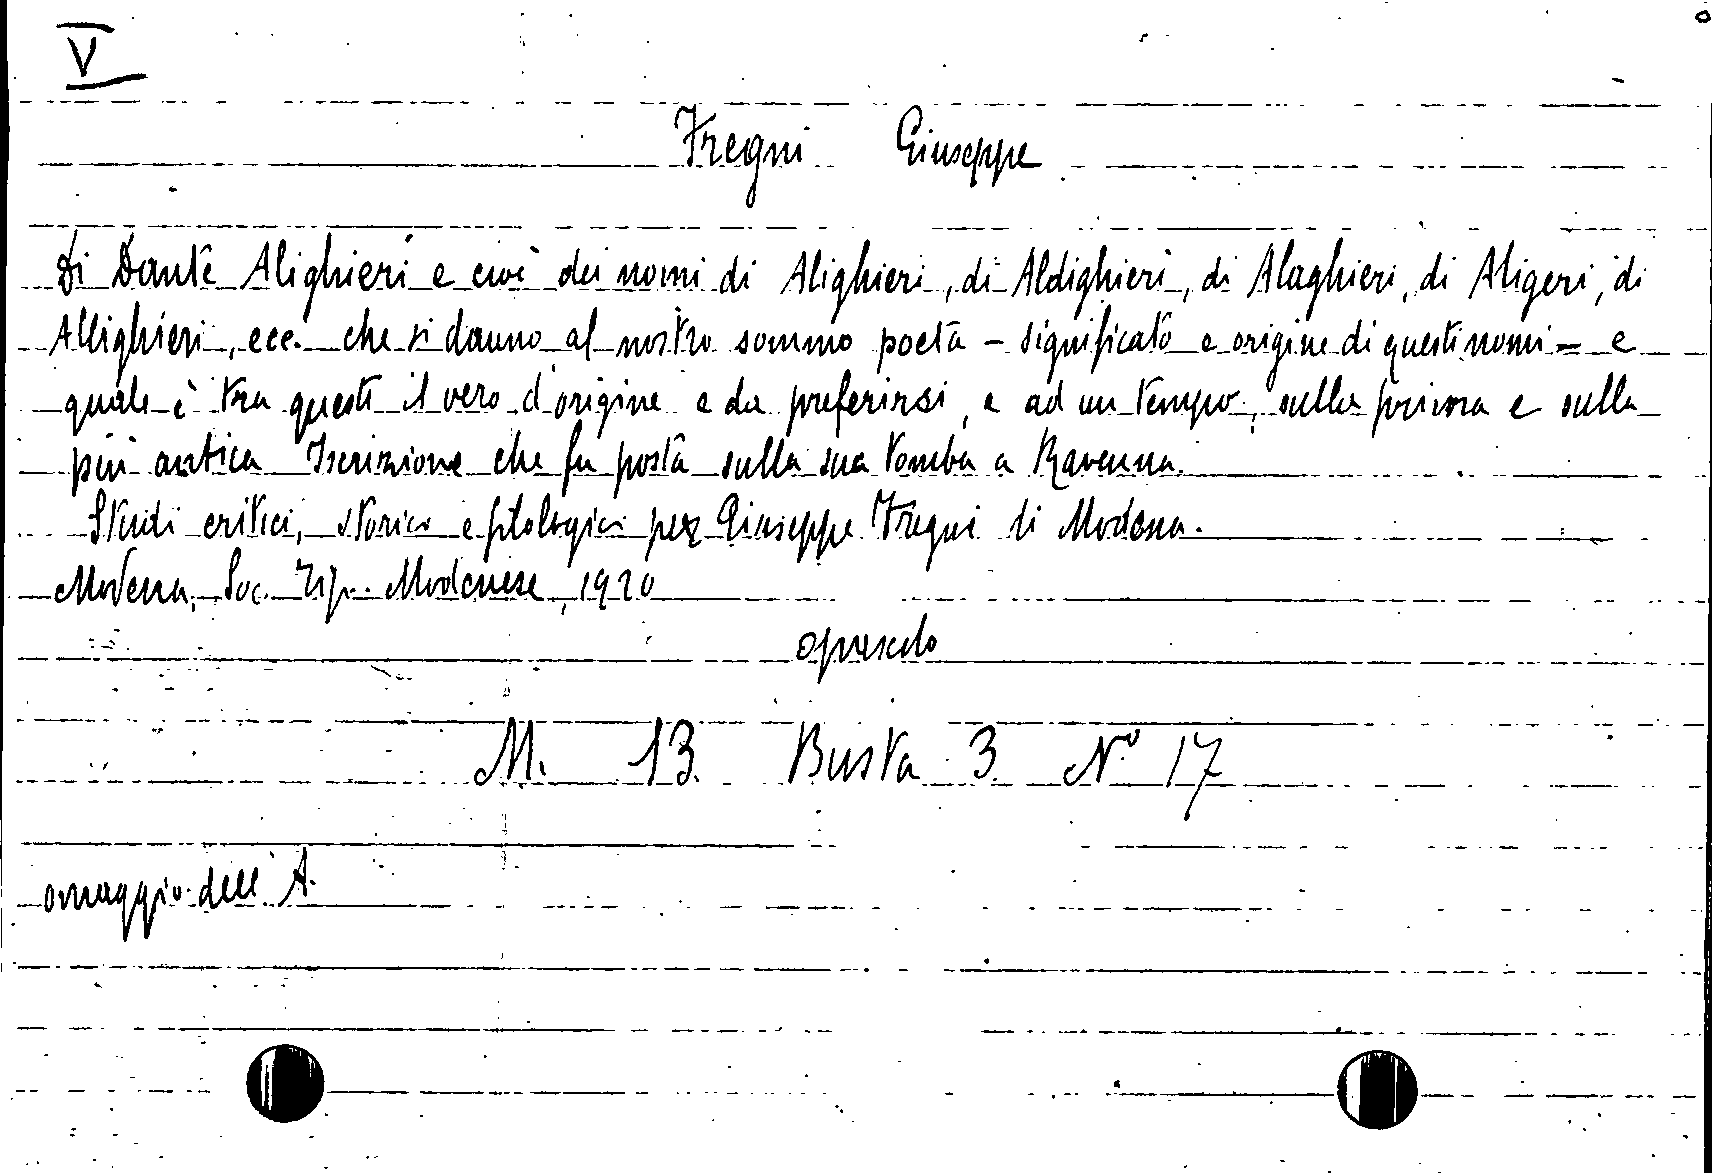 V
Fregni Giuseppe
Di Dante Alighieri e cioè dei nomi di Alighieri, di Aldighieri, di Alaghieri, di Aligeri, di
Allighieri, ecc. che si danno al nostro sommo poeta - significato e origine di questi nomi - e
quale è tra questi il vero d'origine e da preferirsi, e ad un tempo, sulla prima e sulla
più antica Iscrizione che fu posta sulla sua tomba a Ravenna.
Studi critici, storici e filologici per Giuseppe Fregni di Modena.
Modena, Soc. Tip. Modenese, 1920
opuscolo
M. 13. Busta 3 N.º 17
omaggio dell'A.